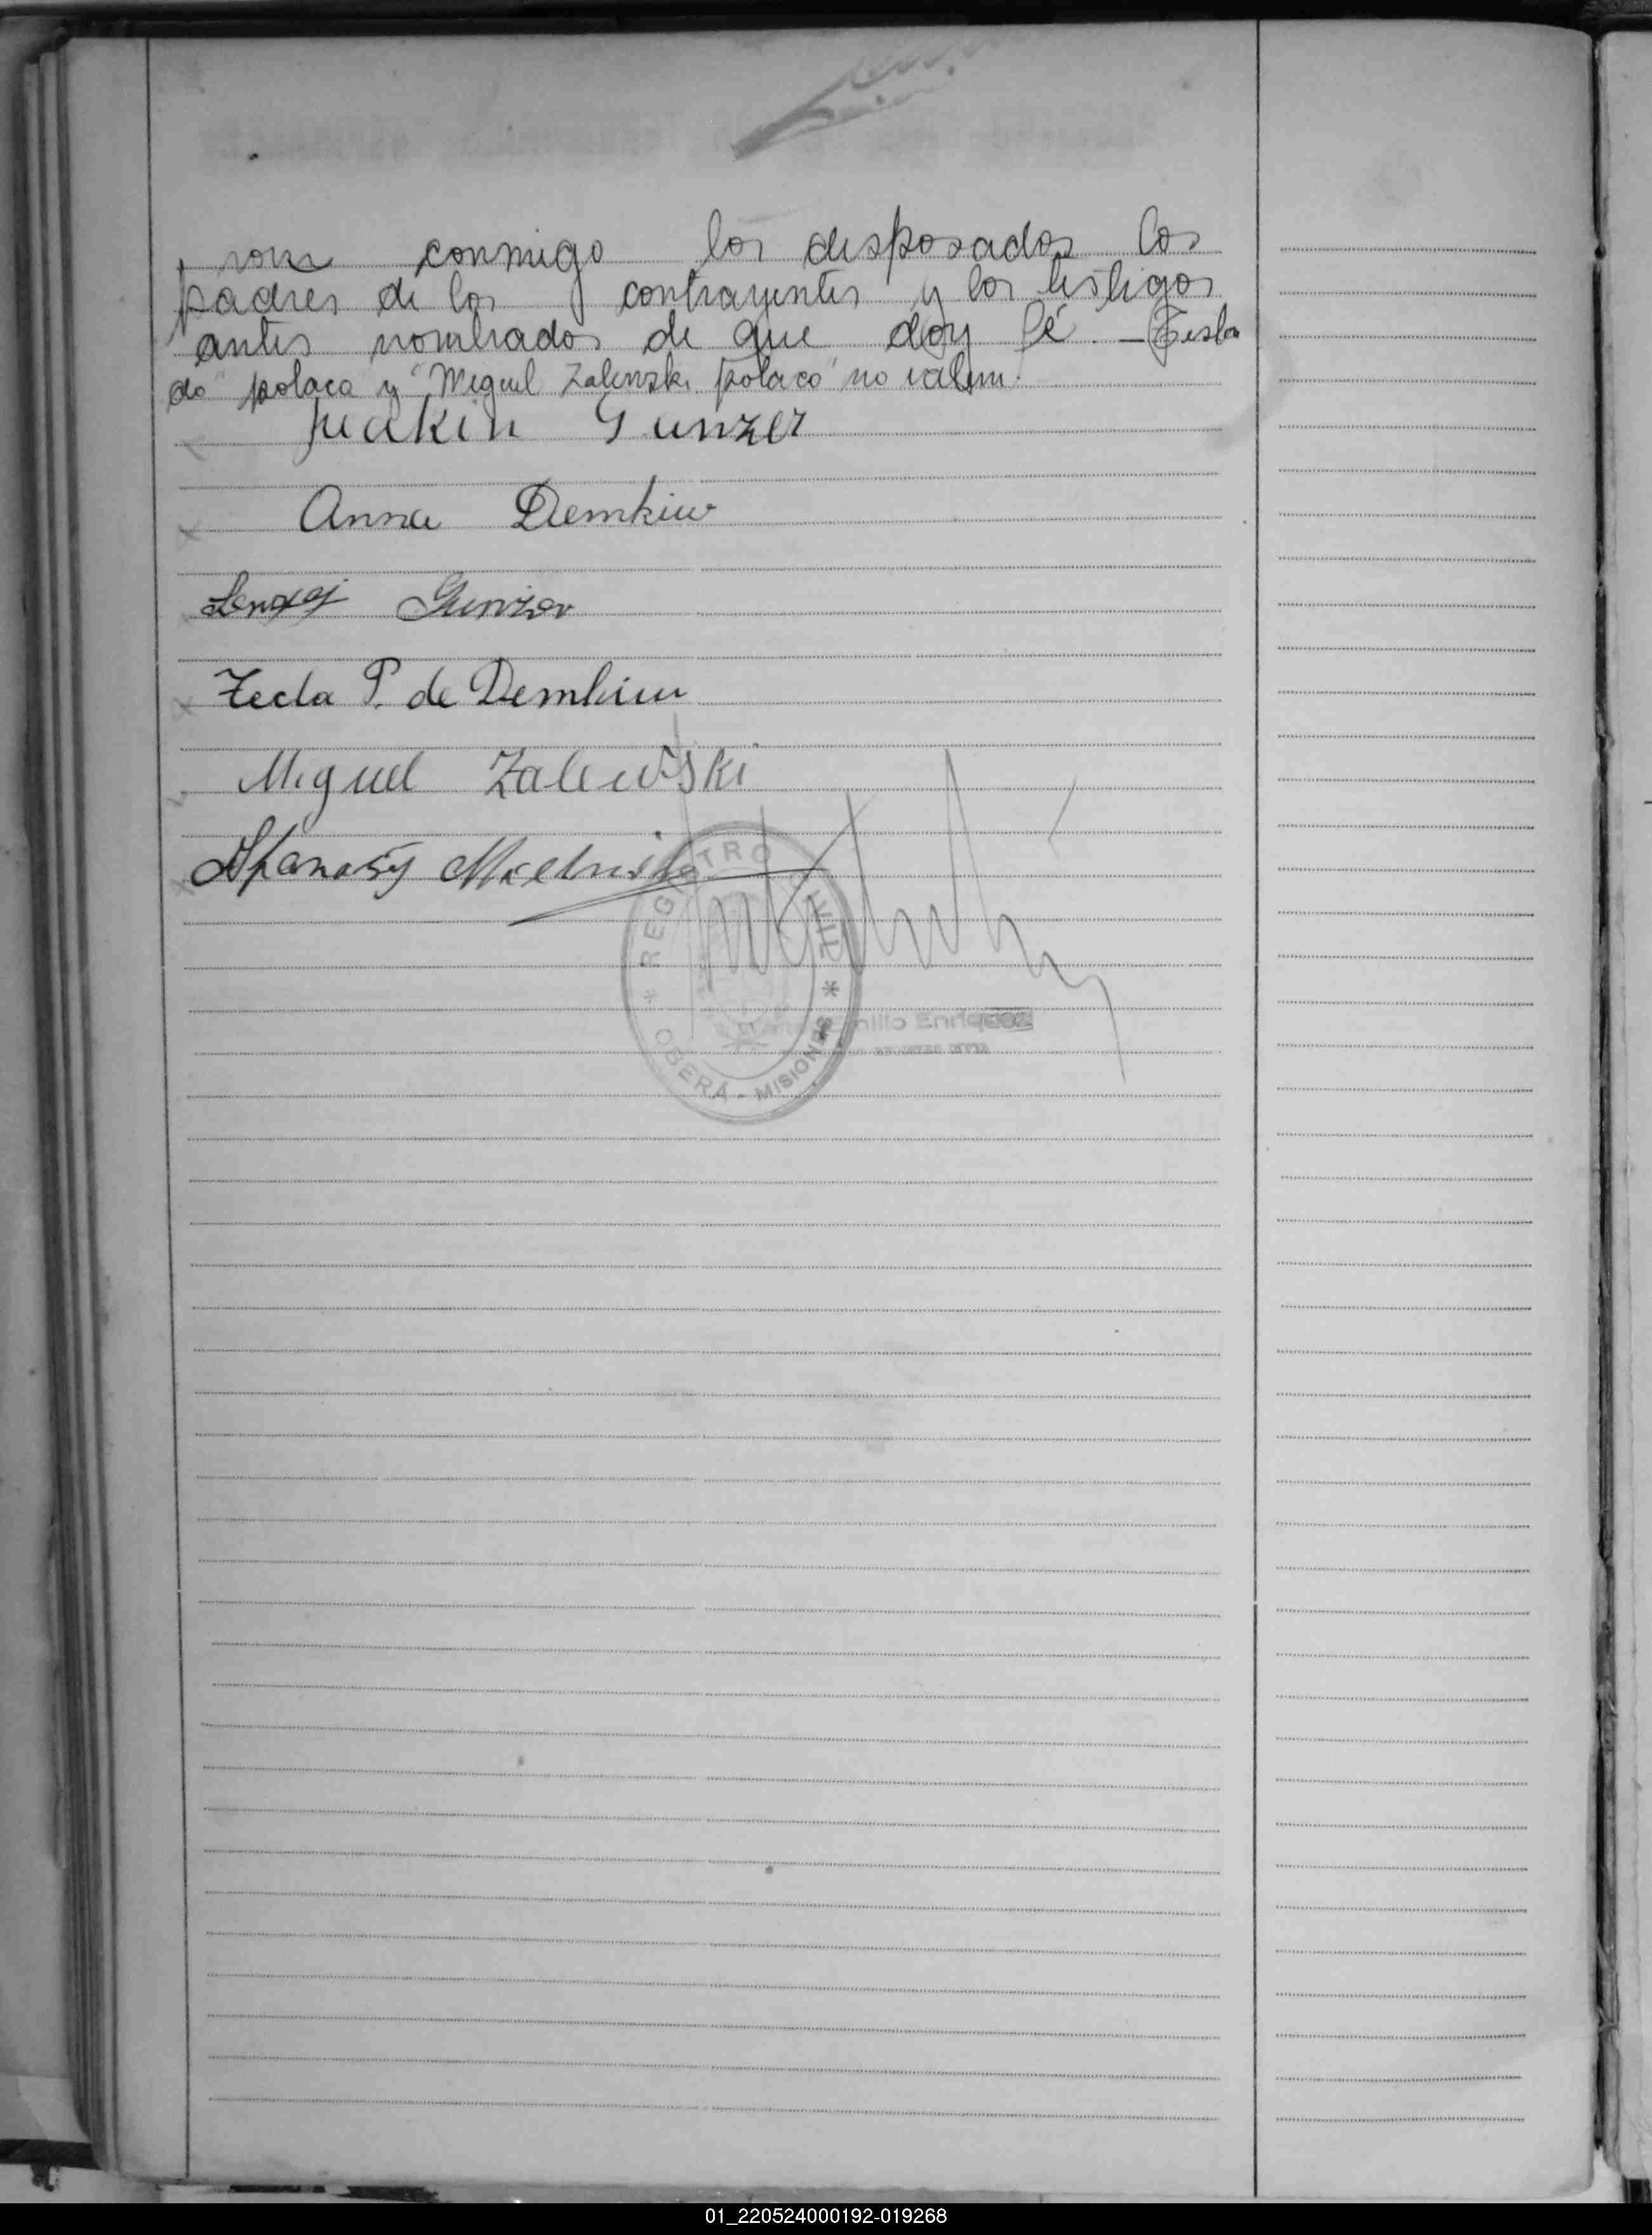 ron conmigo los desposados los
padres de los contrayentes y los testigos
antes nombrados de que doy fé. — Testa
do "polaca y "Miguel Zalewski polaco" no valen.
Juakin Gunzer
Anna Demkiw
Gunzer
Tecla P. de Demkiw
Miguel Zalewski
REGISTRO CIVIL
Emilio Enriquez
* OBERÁ - MISIONES *
01_220524000192-019268